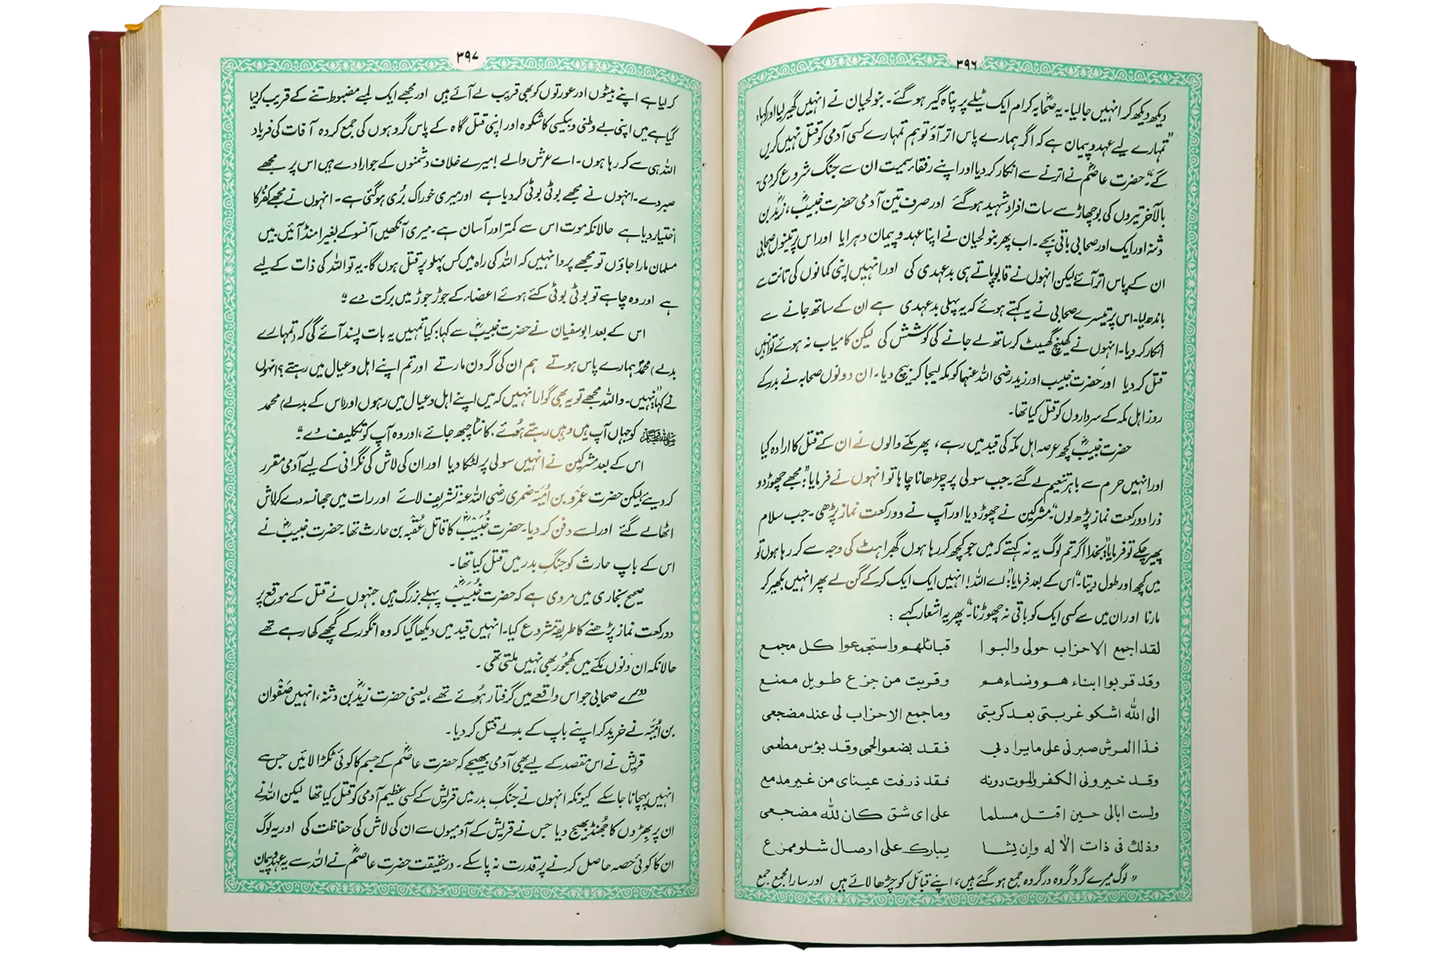 ۳۹۶
دیکھ دیکھ کر انہیں جا لیا۔ یہ صحابہ کرام ایک ٹیلے پر پناہ گیر ہو گئے۔ بنو لحیان نے انہیں گھیر لیا اور کہا،
"تمہارے لیے عہد و پیمان ہے کہ اگر ہمارے پاس اتر آؤ تو ہم تمہارے کسی آدمی کو قتل نہیں کریں
گے"۔ حضرت عاصمؓ نے اترنے سے انکار کر دیا اور اپنے رفقاء سمیت ان سے جنگ شروع کر دی۔
بالآخر تیروں کی بوچھاڑ سے سات افراد شہید ہو گئے اور صرف تین آدمی حضرت خبیبؓ، زیدؓ بن
دثنہ اور ایک اور صحابی باقی بچے۔ اب پھر بنو لحیان نے اپنا عہد و پیمان دہرایا اور اس پر تینوں صحابی
ان کے پاس اتر آئے لیکن انہوں نے قابو پاتے ہی بدعہدی کی اور انہیں اپنی کمانوں کی تانت سے
باندھ لیا۔ اس پر تیسرے صحابی نے یہ کہتے ہوئے کہ یہ پہلی بدعہدی ہے ان کے ساتھ جانے سے
انکار کر دیا۔ انہوں نے کھینچ گھسیٹ کر ساتھ لے جانے کی کوشش کی لیکن کامیاب نہ ہوئے تو انہیں
قتل کر دیا اور حضرت خبیب اور زید رضی اللہ عنہما کو مکہ لیجا کر بیچ دیا۔ ان دونوں صحابہ نے بدر کے
روز اہل مکہ کے سرداروں کو قتل کیا تھا۔
حضرت خبیبؓ کچھ عرصہ اہل مکہ کی قید میں رہے، پھر مکے والوں نے ان کے قتل کا ارادہ کیا
اور انہیں حرم سے باہر تنعیم لے گئے۔ جب سولی پر چڑھانا چاہا تو انہوں نے فرمایا: "مجھے چھوڑ دو
ذرا دو رکعت نماز پڑھ لوں"۔ مشرکین نے چھوڑ دیا اور آپ نے دو رکعت نماز پڑھی۔ جب سلام
پھیر چکے تو فرمایا: "بخدا اگر تم لوگ یہ نہ کہتے کہ میں جو کچھ کر رہا ہوں گھبراہٹ کی وجہ سے کر رہا ہوں تو
میں کچھ اور طول دیتا"۔ اس کے بعد فرمایا: "اے اللہ! انہیں ایک ایک کر کے گن لے پھر انہیں بکھیر کر
مارنا اور ان میں سے کسی ایک کو باقی نہ چھوڑنا"۔ پھر یہ اشعار کہے :
لقد اجمع الاحزاب حولی والبوا قبائلھم واستجمعوا کل مجمع
وقد قربوا ابناءھم ونساءھم وقربت من جزع طویل ممنع
الی اللہ اشکو غربتی بعد کربتی وما جمع الاحزاب لی عند مضجعی
فذا العرش صبرنی علی ما یراد بی فقد بضعوا لحمی وقد بؤس مطعمی
وقد خیرونی الکفر والموت دونه فقد ذرفت عینای من غیر مدمع
ولست ابالی حین اقتل مسلما علی ای شق کان للہ مضجعی
وذلك فی ذات الالہ وإن یشا یبارك علی اوصال شلو ممزع
"لوگ میرے گرد گروہ در گروہ جمع ہو گئے ہیں، اپنے قبائل کو چڑھا لائے ہیں اور سارا مجمع جمع
۳۹۷
کر لیا ہے اپنے بیٹوں اور عورتوں کو بھی قریب لے آئے ہیں اور مجھے ایک لمبے مضبوط تنے کے قریب کر دیا
گیا ہے میں اپنی بے وطنی و بیکسی کا شکوہ اور اپنی قتل گاہ کے پاس گروہوں کی جمع کردہ آفات کی فریاد
اللہ ہی سے کر رہا ہوں۔ اے عرش والے! میرے خلاف دشمنوں کے جو ارادے ہیں اس پر مجھے
صبر دے۔ انہوں نے مجھے بوٹی بوٹی کر دیا ہے اور میری خوراک بُری ہو گئی ہے۔ انہوں نے مجھے کفر کا
اختیار دیا ہے حالانکہ موت اس سے کمتر اور آسان ہے۔ میری آنکھیں آنسو کے بغیر امنڈ آئیں۔ میں
مسلمان مارا جاؤں تو مجھے پروا نہیں کہ اللہ کی راہ میں کس پہلو پر قتل ہوں گا۔ یہ تو اللہ کی ذات کے لیے
ہے اور وہ چاہے تو بوٹی بوٹی کئے ہوئے اعضاء کے جوڑ جوڑ میں برکت دے"۔
اس کے بعد ابوسفیان نے حضرت خبیبؓ سے کہا: کیا تمہیں یہ بات پسند آئے گی کہ (تمہارے
بدلے) محمدؐ ہمارے پاس ہوتے ہم ان کی گردن مارتے اور تم اپنے اہل و عیال میں رہتے؟ انہوں
نے کہا: "نہیں۔ واللہ مجھے تو یہ بھی گوارا نہیں کہ میں اپنے اہل و عیال میں رہوں اور (اس کے بدلے) محمد
ﷺ کو جہاں آپ ہیں وہیں رہتے ہوئے، کانٹا چبھ جائے، اور وہ آپ کو تکلیف دے"۔
اس کے بعد مشرکین نے انہیں سولی پر لٹکا دیا اور ان کی لاش کی نگرانی کے لیے آدمی مقرر
کر دیئے لیکن حضرت عمرو بن امیہ ضمری رضی اللہ عنہ تشریف لائے اور رات میں جھانسہ دے کر لاش
اٹھالے گئے اور اسے دفن کر دیا۔ حضرت خبیبؓ کا قاتل عقبہ بن حارث تھا۔ حضرت خبیبؓ نے
اس کے باپ حارث کو جنگ بدر میں قتل کیا تھا۔
صحیح بخاری میں مروی ہے کہ حضرت خبیبؓ پہلے بزرگ ہیں جنہوں نے قتل کے موقع پر
دو رکعت نماز پڑھنے کا طریقہ شروع کیا۔ انہیں قید میں دیکھا گیا کہ وہ انگور کے گچھے کھا رہے تھے
حالانکہ ان دنوں مکے میں کھجور بھی نہیں ملتی تھی۔
دوسرے صحابی جو اس واقعے میں گرفتار ہوئے تھے، یعنی حضرت زیدؓ بن دثنہ، انہیں صفوان
بن امیہ نے خرید کر اپنے باپ کے بدلے قتل کر دیا۔
قریش نے اس مقصد کے لیے بھی آدمی بھیجے کہ حضرت عاصمؓ کے جسم کا کوئی ٹکڑا لائیں جس سے
انہیں پہچانا جا سکے کیونکہ انہوں نے جنگ بدر میں قریش کے کسی عظیم آدمی کو قتل کیا تھا لیکن اللہ نے
ان پر بھڑوں کا جھنڈ بھیج دیا جس نے قریش کے آدمیوں سے ان کی لاش کی حفاظت کی اور یہ لوگ
ان کا کوئی حصہ حاصل کرنے پر قدرت نہ پا سکے۔ درحقیقت حضرت عاصمؓ نے اللہ سے یہ عہد و پیمان